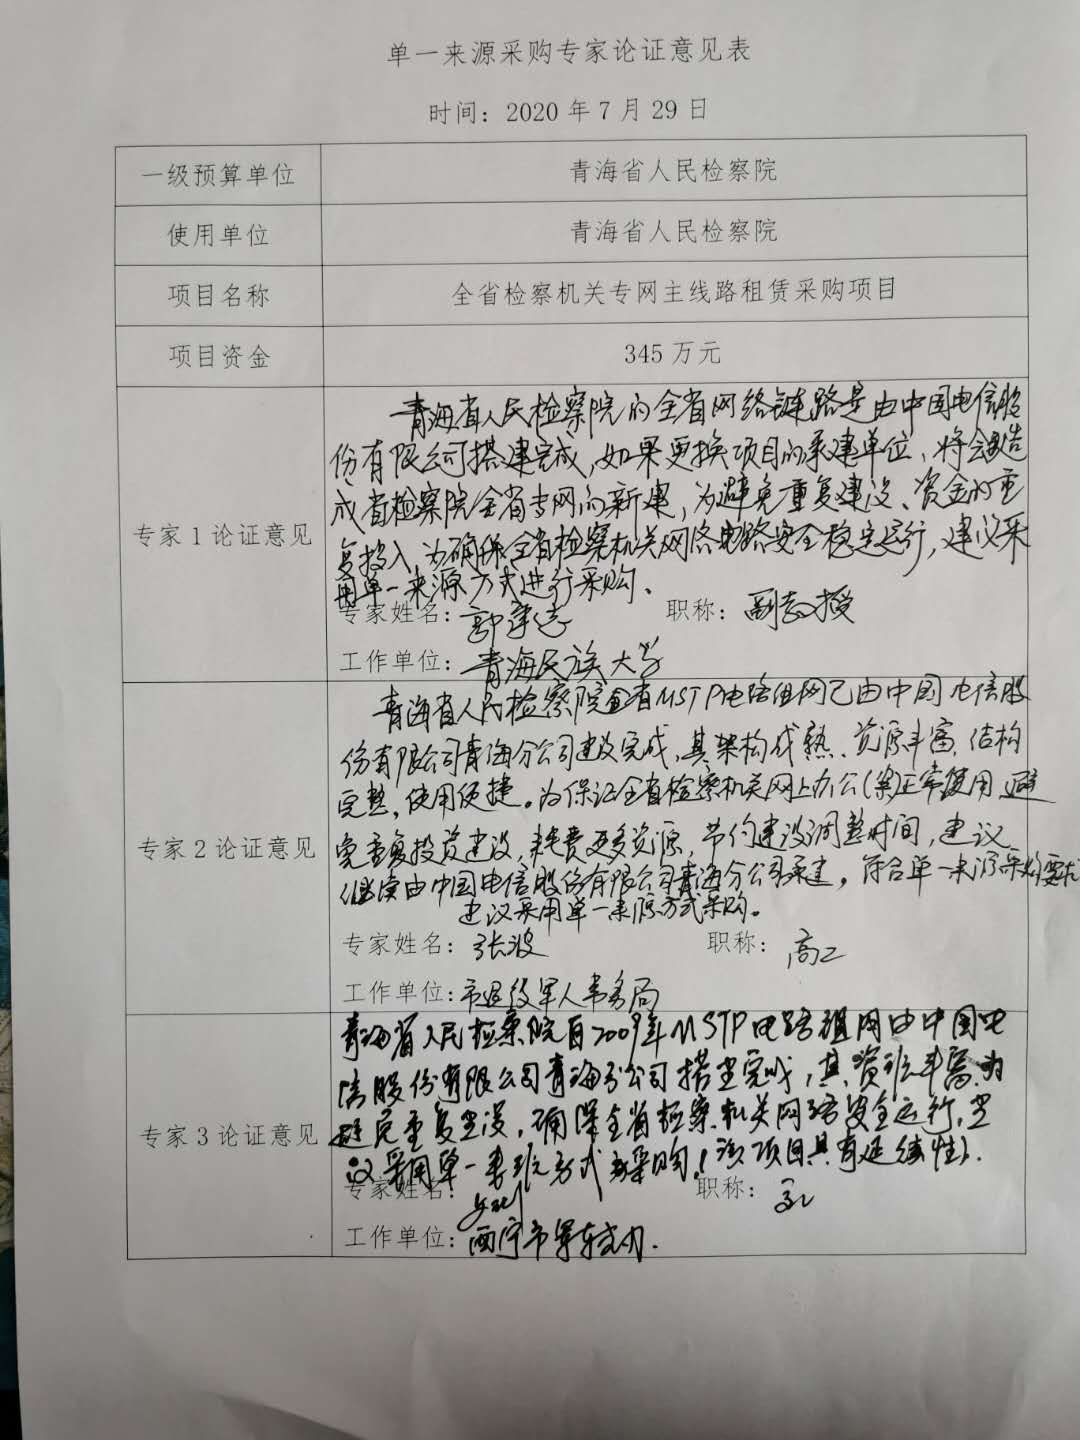 单一来源采购专家论证意见表
时间：2020年7月29日
一级预算单位 青海省人民检察院
使用单位 青海省人民检察院
项目名称 全省检察机关专网主线路租赁采购项目
项目资金 345万元
青海省人民检察院的全省网络链路是由中国电信股
份有限公司搭建完成，如果更换项目的承建单位、将会造
成省检察院全省专网的新建，为避免重复建设、资金的重
专家1论证意见
复投入，为确保全省检察机关网络电路安全稳定运行，建议采
用单一来源方式进行采购、
专家姓名： 职称：副教授
工作单位：青海民族大学
青海省人民检察院全省MSTP电路组网已由中国电信股
份有限公司青海分公司建设完成，其架构成熟、资源丰富、结构
完整，使用便捷。为保证全省检察机关网上办公(案)正常使用，避
专家2论证意见
免重复投资建设，耗费更多资源，节约建设调整时间，建议
继续由中国电信股份有限公司青海分公司承建，符合单一来源采购要求
建议采用单一来源方式采购。
专家姓名：张波 职称：高工
工作单位：市退役军人事务局
青海省人民检察院自2009年MSTP电路组网由中国电
信股份有限公司青海分公司搭建完成，其资源丰富，为
专家3论证意见
避免重复建设，确保全省检察机关网络安全运行，建
议采用单一来源方式采购，（该项目具有延续性）.
专家姓名： 职称：高工
工作单位：西宁市